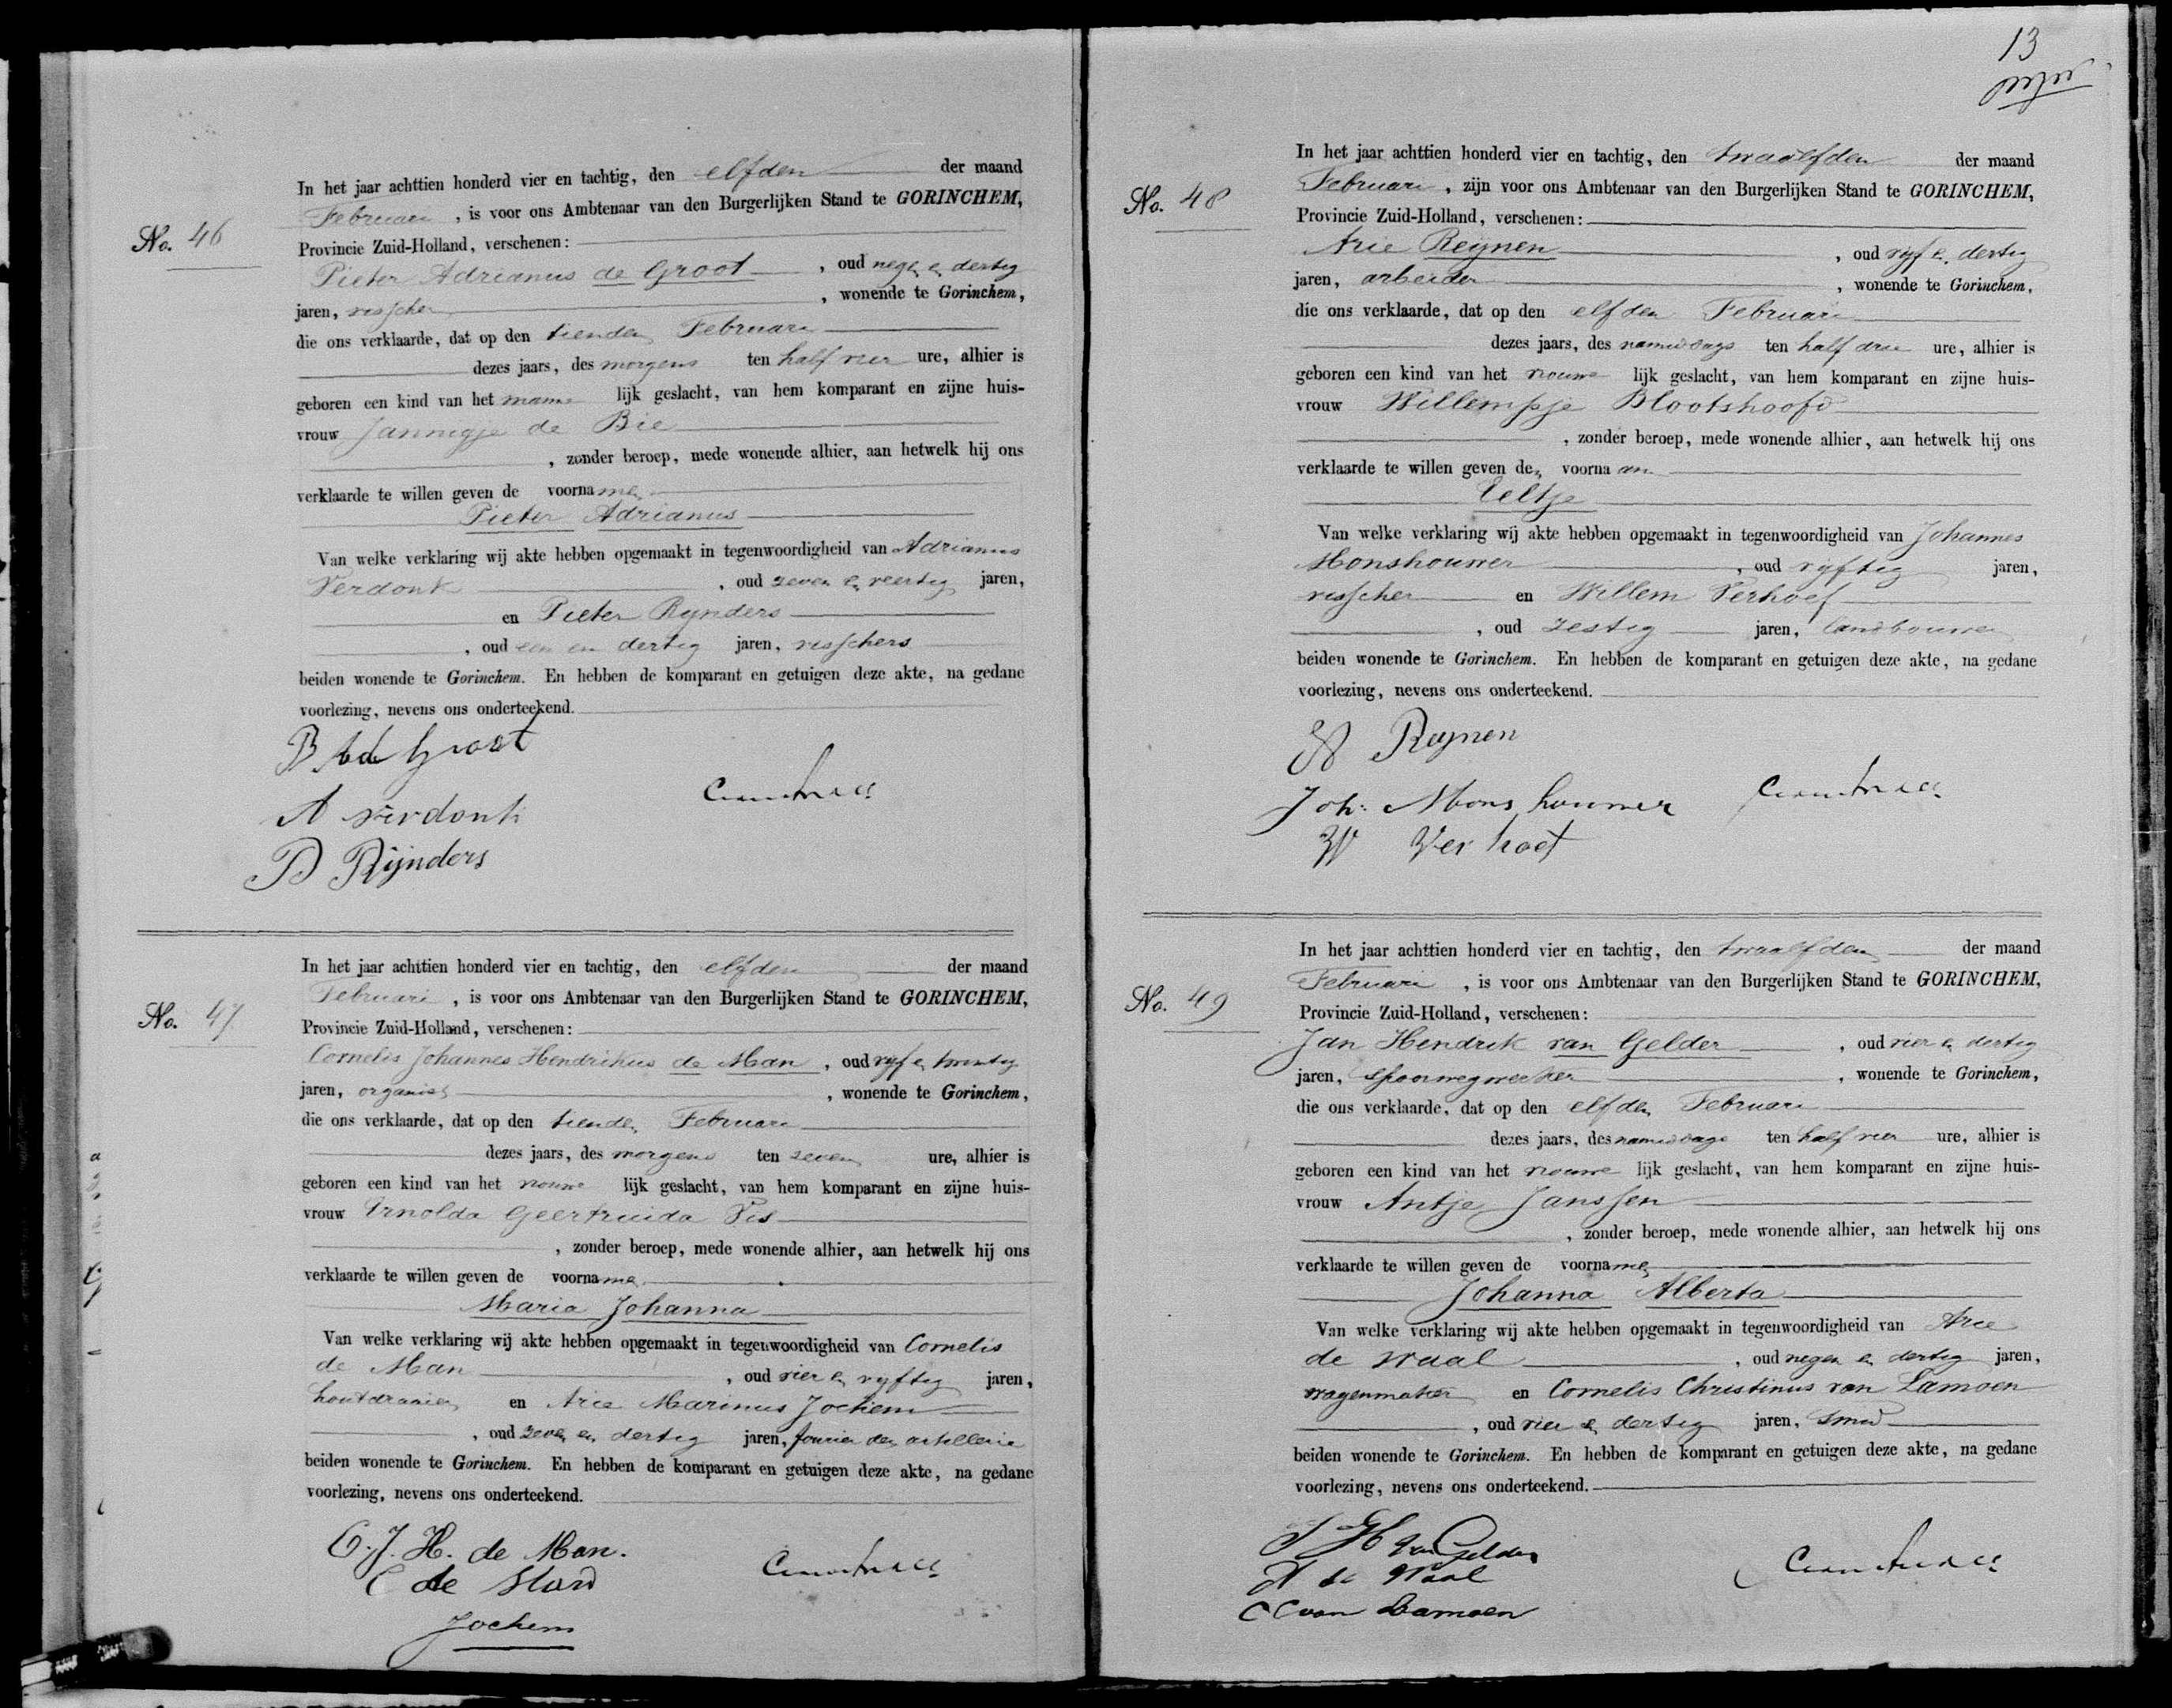 No. 46
In het jaar achttien honderd vier en tachtig, den elfden der maand
Februari, is voor ons Ambtenaar van den Burgerlijken Stand te GORINCHEM,
Provincie Zuid-Holland, verschenen:
Pieter Adrianus de Groot, oud negen en dertig
jaren, visscher, wonende te Gorinchem,
die ons verklaarde, dat op den tienden Februari
dezes jaars, des morgens ten half vier ure, alhier is
geboren een kind van het manne lijk geslacht, van hem komparant en zijne huis-
vrouw Jannigje de Bie
, zonder beroep, mede wonende alhier, aan hetwelk hij ons
verklaarde te willen geven de voornamen
Pieter Adrianus
Van welke verklaring wij akte hebben opgemaakt in tegenwoordigheid van Adrianus
Verdonk, oud zeven en veertig jaren,
en Pieter Rijnders
, oud een en dertig jaren, visschers
beiden wonende te Gorinchem. En hebben de komparant en getuigen deze akte, na gedane
voorlezing, nevens ons onderteekend.
P A de Groot
A verdonk
P Rijnders
No. 47
In het jaar achttien honderd vier en tachtig, den elfden der maand
Februari, is voor ons Ambtenaar van den Burgerlijken Stand te GORINCHEM,
Provincie Zuid-Holland, verschenen:
Cornelis Johannes Hendrikus de Man, oud vijf en twintig
jaren, organist, wonende te Gorinchem,
die ons verklaarde, dat op den tienden Februari
dezes jaars, des morgens ten zeven ure, alhier is
geboren een kind van het vrouwe lijk geslacht, van hem komparant en zijne huis-
vrouw Arnolda Geertruida Vis
, zonder beroep, mede wonende alhier, aan hetwelk hij ons
verklaarde te willen geven de voornamen
Maria Johanna
Van welke verklaring wij akte hebben opgemaakt in tegenwoordigheid van Cornelis
de Man, oud vier en vijftig jaren,
houtdraaier en Arie Marinus Jochem
, oud zeven en dertig jaren, fourier der artillerie
beiden wonende te Gorinchem. En hebben de komparant en getuigen deze akte, na gedane
voorlezing, nevens ons onderteekend.
C. J. H. de Man.
C de Man
Jochem
13
No. 48
In het jaar achttien honderd vier en tachtig, den twaalfden der maand
Februari, zijn voor ons Ambtenaar van den Burgerlijken Stand te GORINCHEM,
Provincie Zuid-Holland, verschenen:
Arie Reijnen, oud vijf en dertig
jaren, arbeider, wonende te Gorinchem,
die ons verklaarde, dat op den elfden Februari
dezes jaars, des namiddags ten half drie ure, alhier is
geboren een kind van het vrouwe lijk geslacht, van hem komparant en zijne huis-
vrouw Willempje Blootshoofd
, zonder beroep, mede wonende alhier, aan hetwelk hij ons
verklaarde te willen geven den voorna am
Eeltje
Van welke verklaring wij akte hebben opgemaakt in tegenwoordigheid van Johannes
Monshouwer, oud vijftig jaren,
visscher en Willem Verhoef
, oud zestig jaren, landbouwer
beiden wonende te Gorinchem. En hebben de komparant en getuigen deze akte, na gedane
voorlezing, nevens ons onderteekend.
A Reijnen
Joh: Monshouwer
W Verhoef
No. 49
In het jaar achttien honderd vier en tachtig, den twaalfden der maand
Februari, is voor ons Ambtenaar van den Burgerlijken Stand te GORINCHEM,
Provincie Zuid-Holland, verschenen:
Jan Hendrik van Gelder, oud vier en dertig
jaren, spoorwegwerker, wonende te Gorinchem,
die ons verklaarde, dat op den elfden Februari
dezes jaars, des namiddags ten half vier ure, alhier is
geboren een kind van het vrouwe lijk geslacht, van hem komparant en zijne huis-
vrouw Antje Janssen
, zonder beroep, mede wonende alhier, aan hetwelk hij ons
verklaarde te willen geven de voornamen
Johanna Alberta
Van welke verklaring wij akte hebben opgemaakt in tegenwoordigheid van Arie
de Waal, oud negen en dertig jaren,
wagenmaker en Cornelis Christinus van Lamoen
, oud vier en dertig jaren, smid
beiden wonende te Gorinchem. En hebben de komparant en getuigen deze akte, na gedane
voorlezing, nevens ons onderteekend.
J H van Gelder
A de Waal
C C van Lamoen